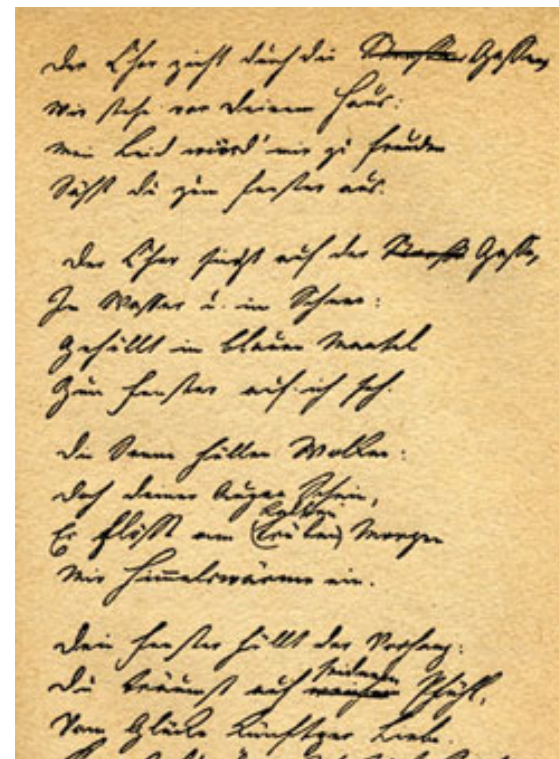 Der Chor zieht durch die Straßen Gassen,
Wir stehn vor Deinem Haus:
Mein Leid würd' mir zu Freuden
Sähst du zum Fenster aus.
Der Chor singt auf der Straße Gasse,
In Wasser u. im Schnee:
Gehüllt im blauen Mantel
Zum Fenster auf ich seh.
Die Sonne hüllen Wolken:
Doch deiner Augen Schein,
kalten
Er flößt am (trüben) Morgen
Mir Himmelswärme ein.
Dein Fenster hüllt der Vorhang:
seidenem
Du träumst auf weichen Pfühl,
Vom Glücke künftger Liebe.